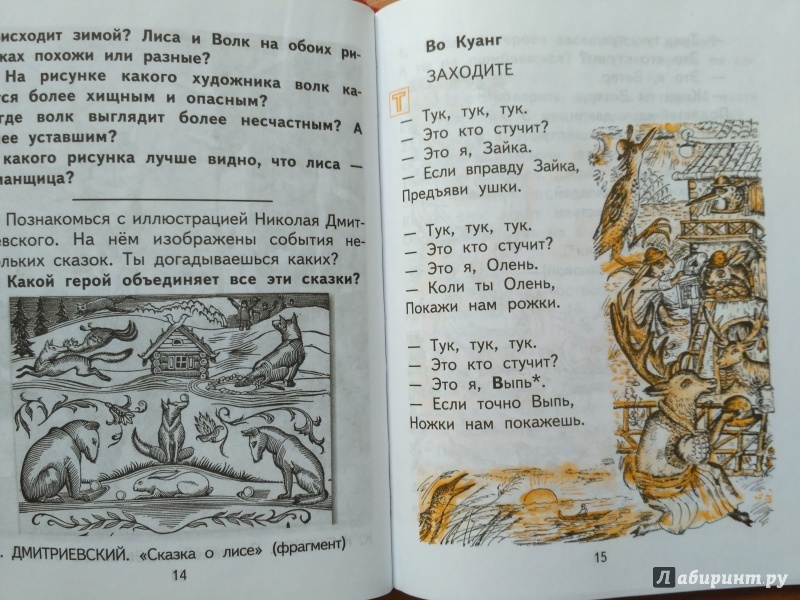 исходит зимой? Лиса и Волк на обоих ри-
ках похожи или разные?
На рисунке какого художника волк ка-
тся более хищным и опасным?
где волк выглядит более несчастным? А
лее уставшим?
какого рисунка лучше видно, что лиса —
манщица?
Познакомься с иллюстрацией Николая Дмит-
евского. На нём изображены события не-
ольких сказок. Ты догадываешься каких?
Какой герой объединяет все эти сказки?
. ДМИТРИЕВСКИЙ. «Сказка о лисе» (фрагмент)
14
Во Куанг
ЗАХОДИТЕ
Т
— Тук, тук, тук.
— Это кто стучит?
— Это я, Зайка.
— Если вправду Зайка,
Предъяви ушки.
— Тук, тук, тук.
— Это кто стучит?
— Это я, Олень.
— Коли ты Олень,
Покажи нам рожки.
— Тук, тук, тук.
— Это кто стучит?
— Это я, Выпь*.
— Если точно Выпь,
Ножки нам покажешь.
15
Лабиринт.ру